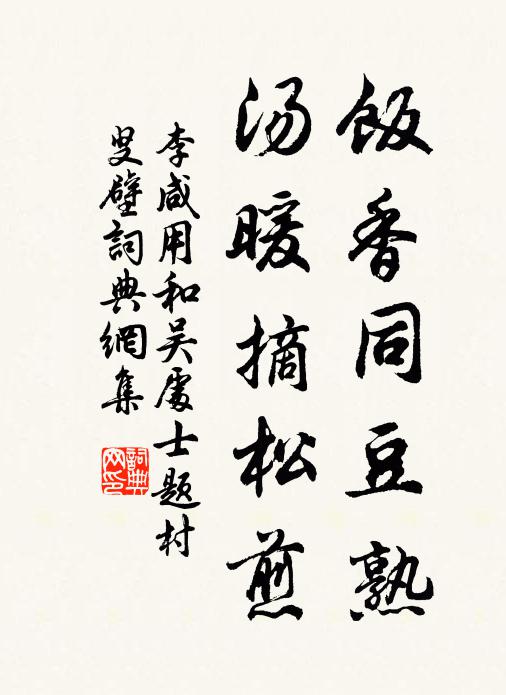 飯香同豆熟
湯暖摘松煎
李咸用和吴處士題村
叟壁詞典網集
詞典网印